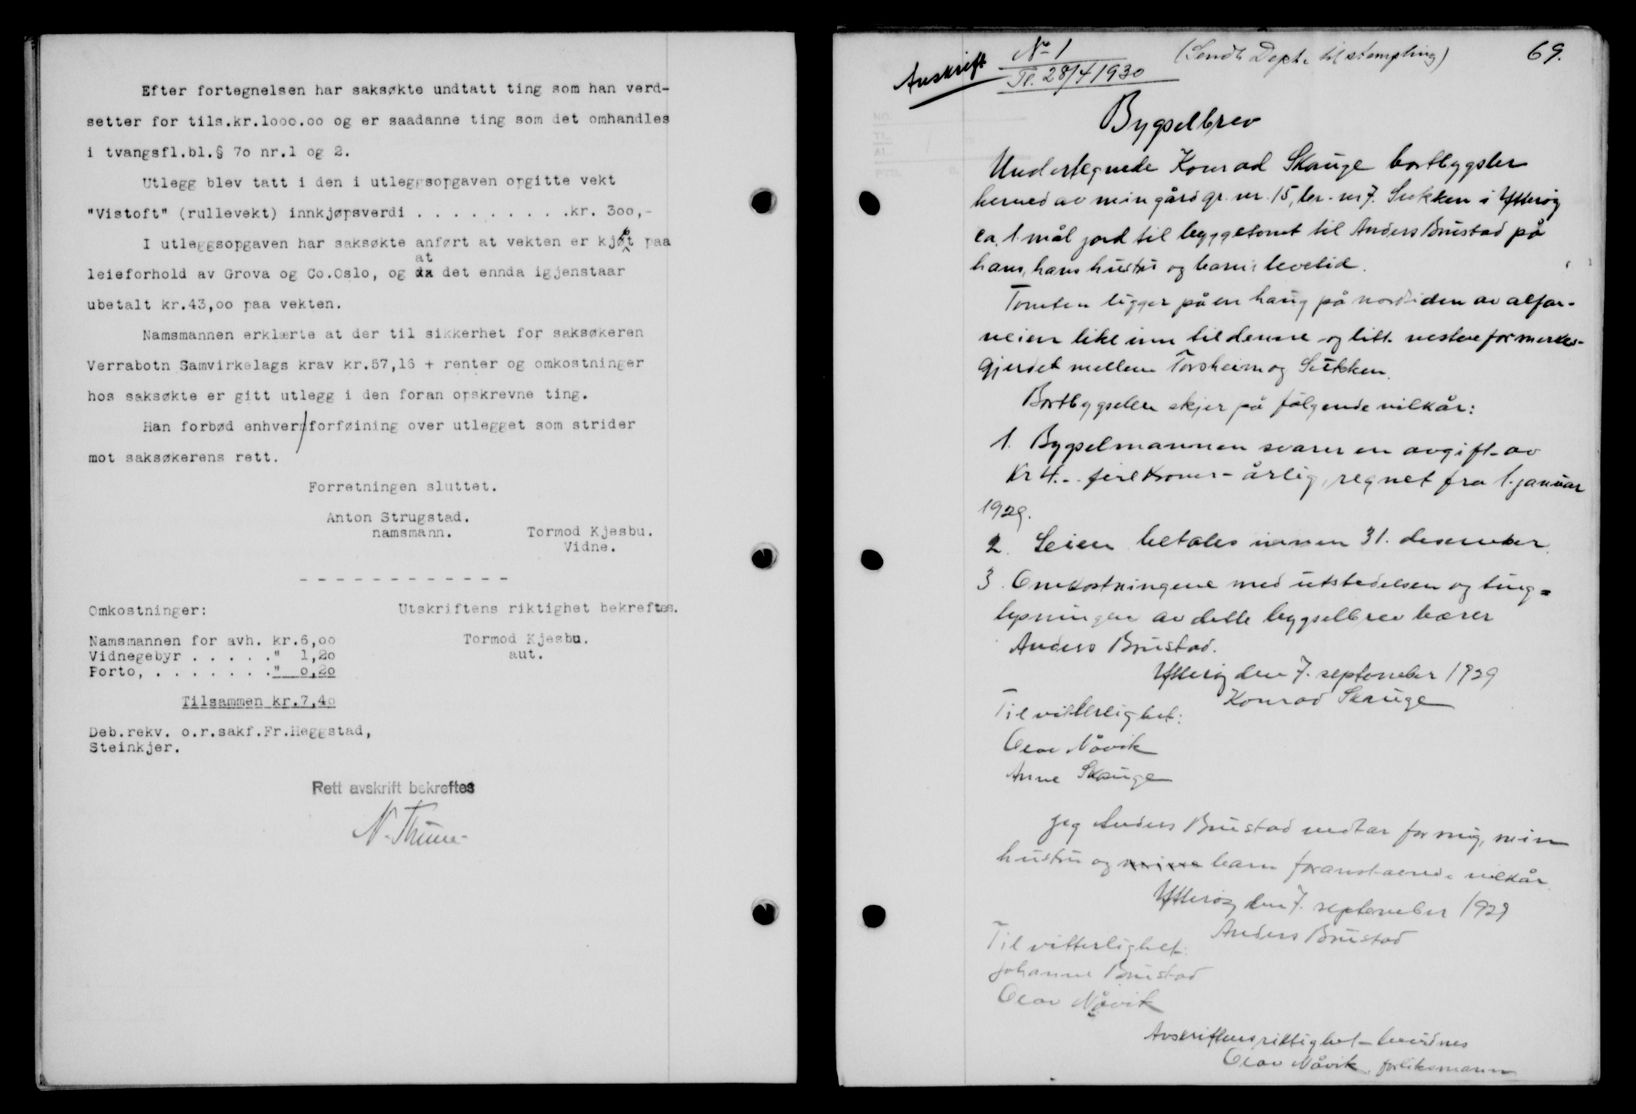 Efter fortegnelsen har saksøkte undtatt ting som han verd-
setter for tils.kr.1ooo.oo og er saadanne ting som det omhandles
i tvangsfl.bl.§ 7o nr.1 og 2.
Utlegg blev tatt i den i utleggsopgaven opgitte vekt
"Vistoft" (rullevekt) innkjøpsverdi . . . . . . . . . .kr. 3oo,-
I utleggsopgaven har saksøkte anført at vekten er kjøpt paa
leieforhold av Grova og Co.Oslo, og at det ennda igjenstaar
ubetalt kr.43,oo paa vekten.
Namsmannen erklærte at der til sikkerhet for saksøkeren
Verrabotn Samvirkelags krav kr.57,16 + renter og omkostninger
hos saksøkte er gitt utlegg i den foran opskrevne ting.
Han forbød enhver forføining over utlegget som strider
mot saksøkerens rett.
Forretningen sluttet.
Anton Strugstad.
namsmann.
Tormod Kjesbu.
Vidne.
- - - - - - - - - - - -
Omkostninger:
Utskriftens riktighet bekreftes.
Namsmannen for avh. kr.6,oo
Tormod Kjesbu.
Vidnegebyr . . . . . ." 1,2o
aut.
Porto, . . . . . . . ." o,2o
Tilsammen kr.7,4o
Deb.rekv. o.r.sakf.Fr.Heggstad,
Steinkjer.
Rett avskrift bekreftes
N. Thune
69.
Avskrift
No 1
Tl. 28/4 1930
(Sendt Dept. til stempling)
Bygselbrev
Undertegnede Konrad Skauge bortbygsler
herned av min gård gr. nr. 15, br. nr 7. Sukken i Ytterøy
ca. 1 mål jord til byggetomt til Anders Brustad på
hans, hans hustru og barns levetid.
Tomten ligger på en haug på nordsiden av alfar-
veien like inn til denne og litt vestenfor merkes-
gjerdet mellem Torsheim og Sukken.
Bortbygselen skjer på følgende vilkår:
1. Bygselmannen svarer en avgift av
kr 4.- fire kroner - årlig, regnet fra 1. januar
1929.
2. Leien betales innen 31. desember.
3. Omkostningene med utstedelsen og ting=
lysningen av dette bygselbrev bærer
Anders Brustad.
Ytterøy den 7. september 1929
Konrad Skauge
Til vitterlighet:
Olav Nåvik
Anne Skauge
Jeg Anders Brustad vedtar for mig, min
hustru og barn foranstaende vilkår
Ytterøy den 7. september 1929
Anders Brustad
Til vitterlighet:
Johanne Brustad
Olav Nåvik
Avskriftens riktighet bevidnes
Olav Nåvik, forliksmann